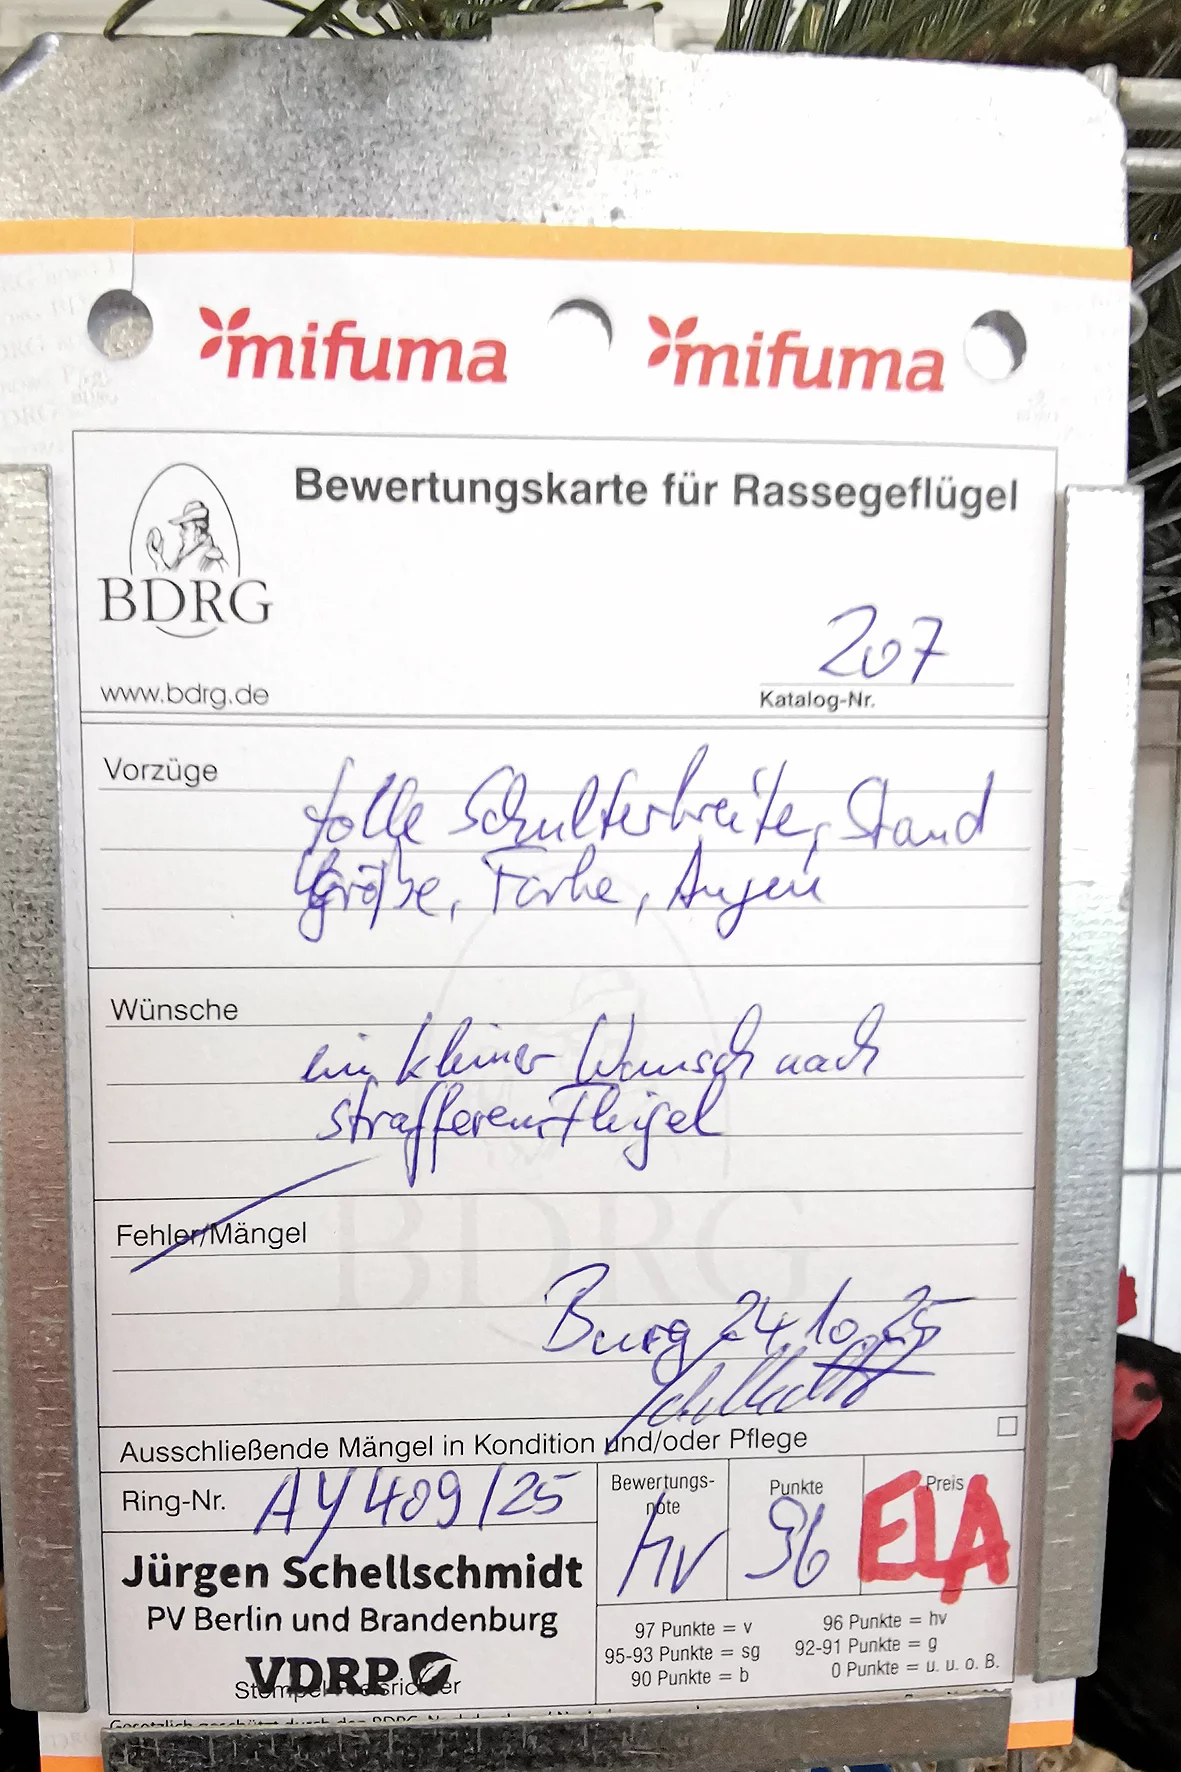 mifuma mifuma
Bewertungskarte für Rassegeflügel
BDRG
www.bdrg.de
207
Katalog-Nr.
Vorzüge
tolle Schulterbreite, Stand
Größe, Farbe, Augen
Wünsche
ein kleiner Wunsch nach
strafferen Flügel
BDRG
Fehler/Mängel
Burg 24.10.25
Ausschließende Mängel in Kondition und/oder Pflege
Ring-Nr. AY409/25
Bewertungs-
note
hv
Punkte
96
Preis
ELA
Jürgen Schellschmidt
PV Berlin und Brandenburg
VDRP
97 Punkte = v 96 Punkte = hv
95-93 Punkte = sg 92-91 Punkte = g
90 Punkte = b 0 Punkte = u. u. o. B.